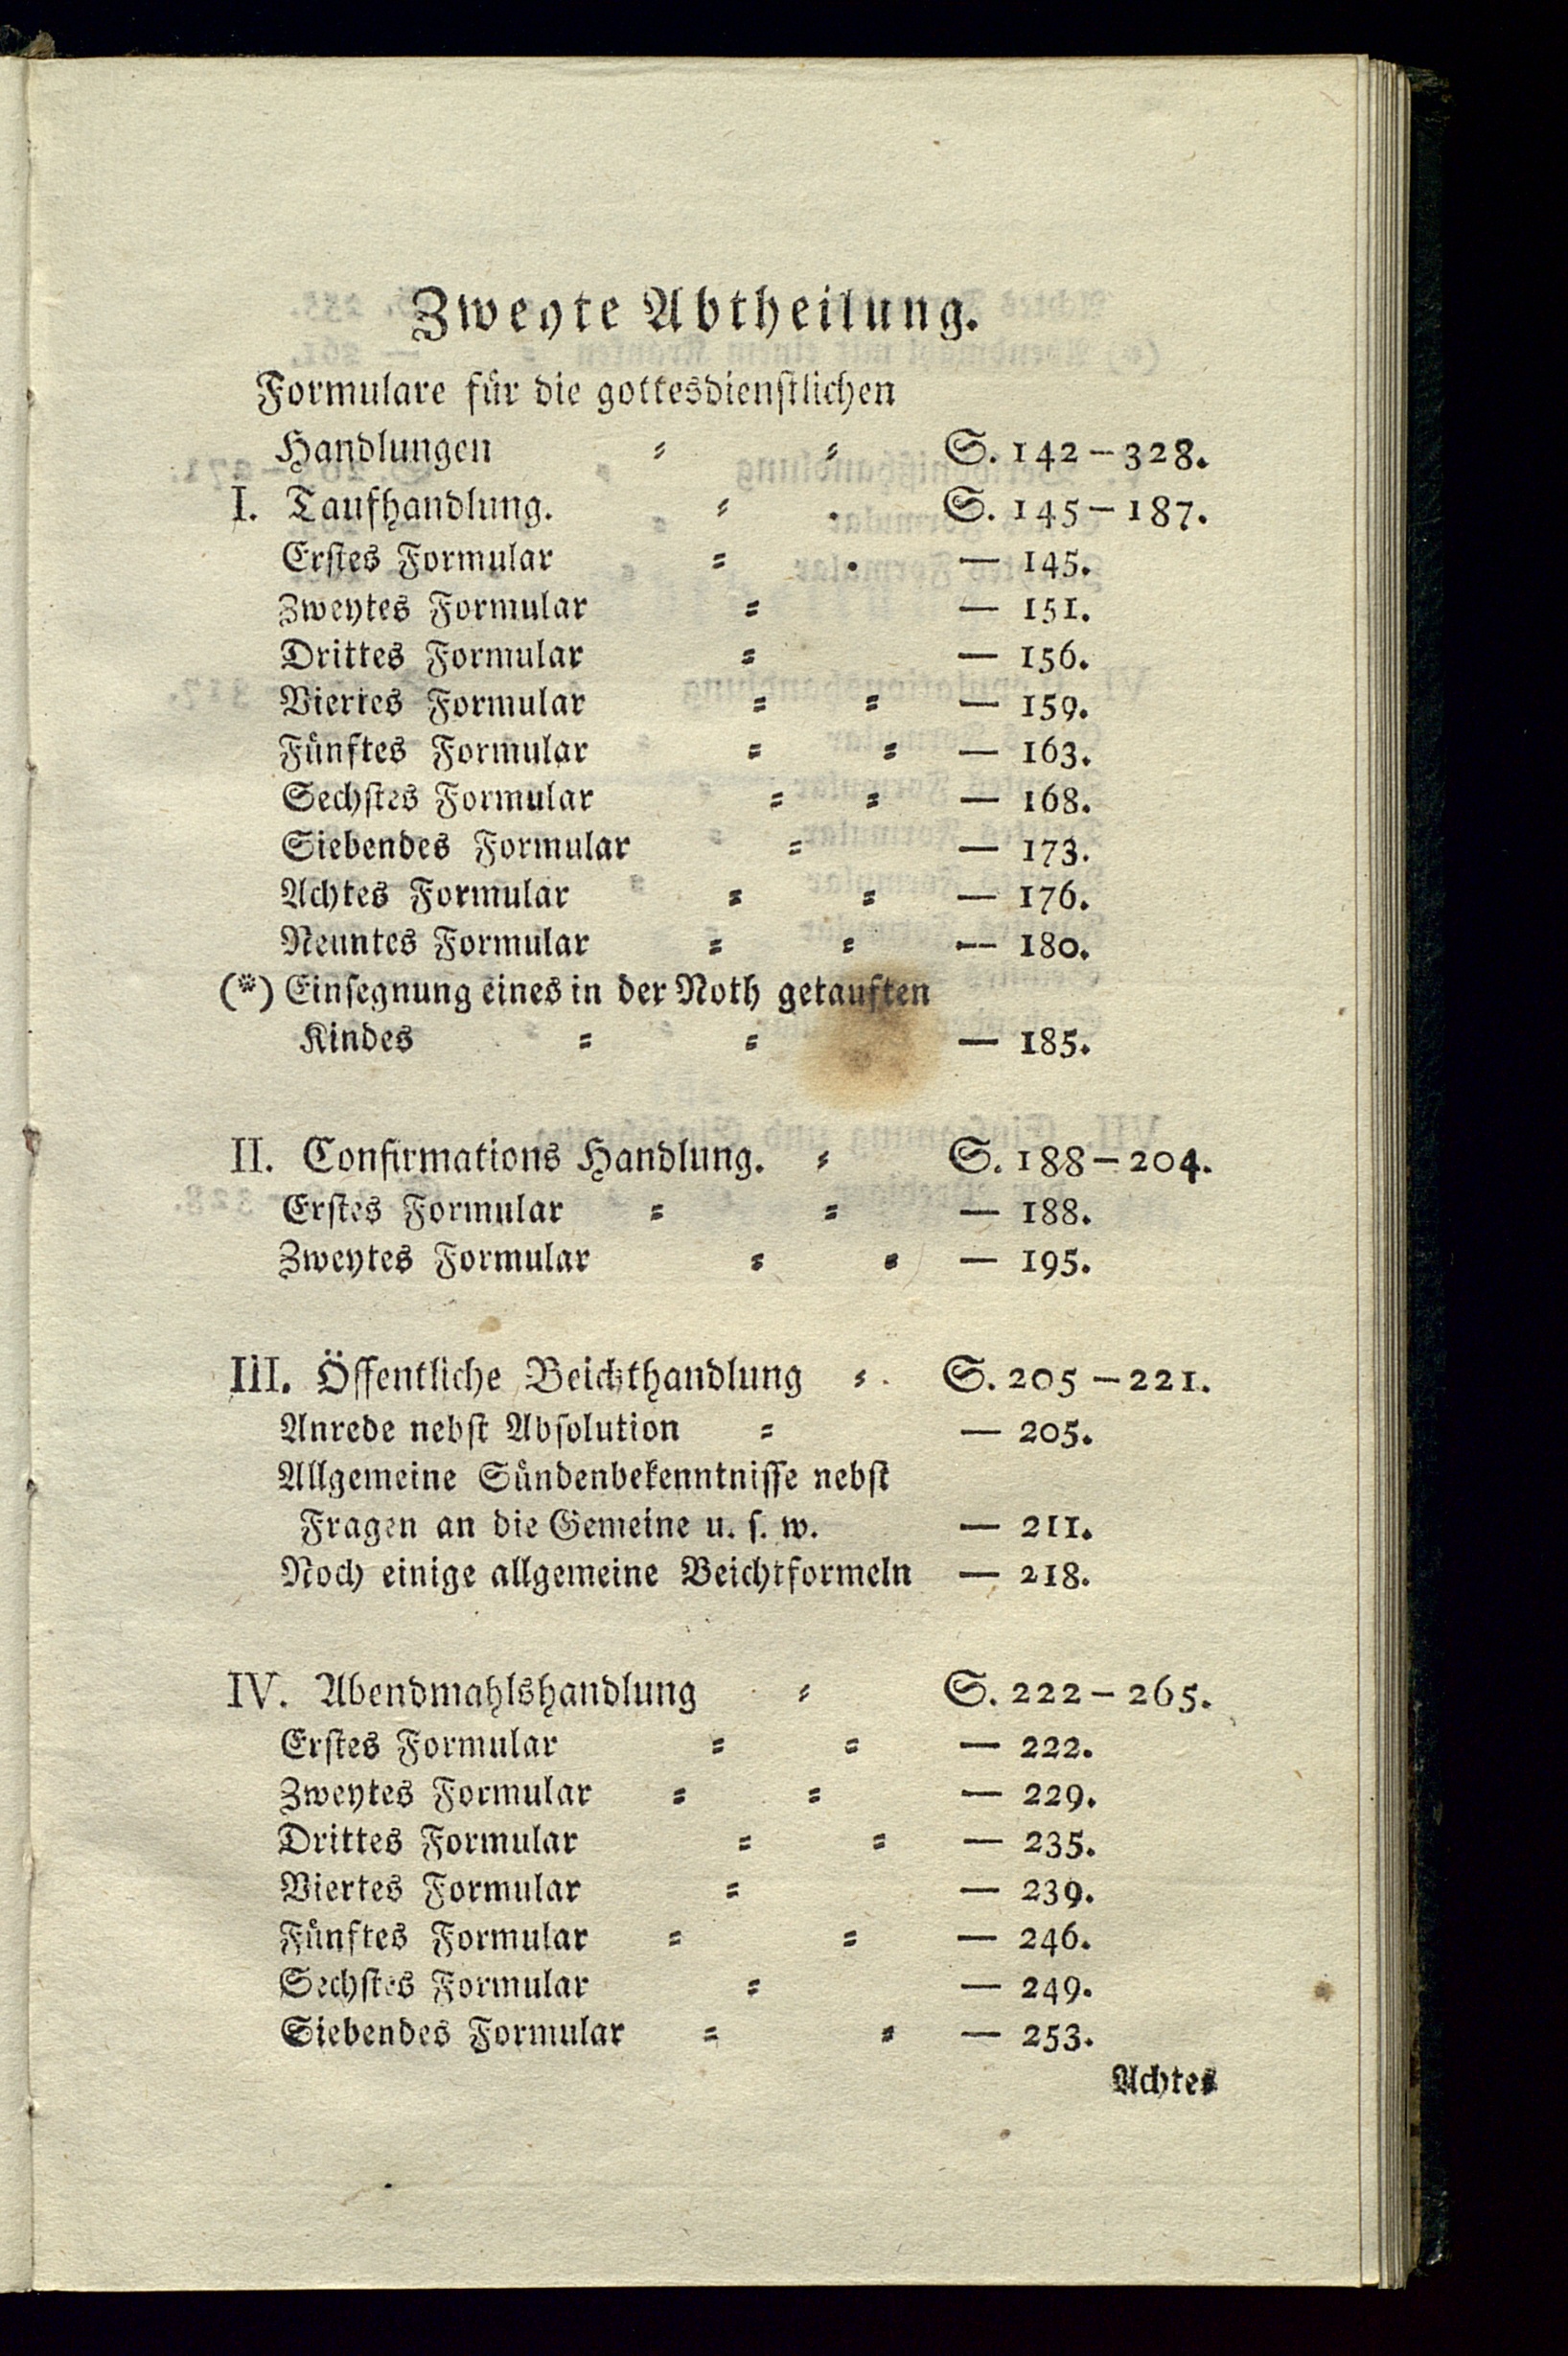 Zweyte Abtheilung.
Formulare für die gottesdienstlichen
Handlungen = = S. 142–328.
I. Taufhandlung. = . S. 145–187.
Erstes Formular = . — 145.
Zweytes Formular = — 151.
Drittes Formular = — 156.
Viertes Formular = = — 159.
Fünftes Formular = = — 163.
Sechstes Formular = = — 168.
Siebendes Formular = — 173.
Achtes Formular = = — 176.
Neuntes Formular = = — 180.
(*) Einsegnung eines in der Noth getauften
Kindes = = — 185.
II. Confirmations Handlung. = S. 188–204.
Erstes Formular = = — 188.
Zweytes Formular = = — 195.
III. Öffentliche Beichthandlung = . S. 205–221.
Anrede nebst Absolution = — 205.
Allgemeine Sündenbekenntnisse nebst
Fragen an die Gemeine u. s. w. — 211.
Noch einige allgemeine Beichtformeln — 218.
IV. Abendmahlshandlung = S. 222–265.
Erstes Formular = = — 222.
Zweytes Formular = = — 229.
Drittes Formular = = — 235.
Viertes Formular = — 239.
Fünftes Formular = = — 246.
Sechstes Formular = — 249.
Siebendes Formular = = — 253.
Achtes